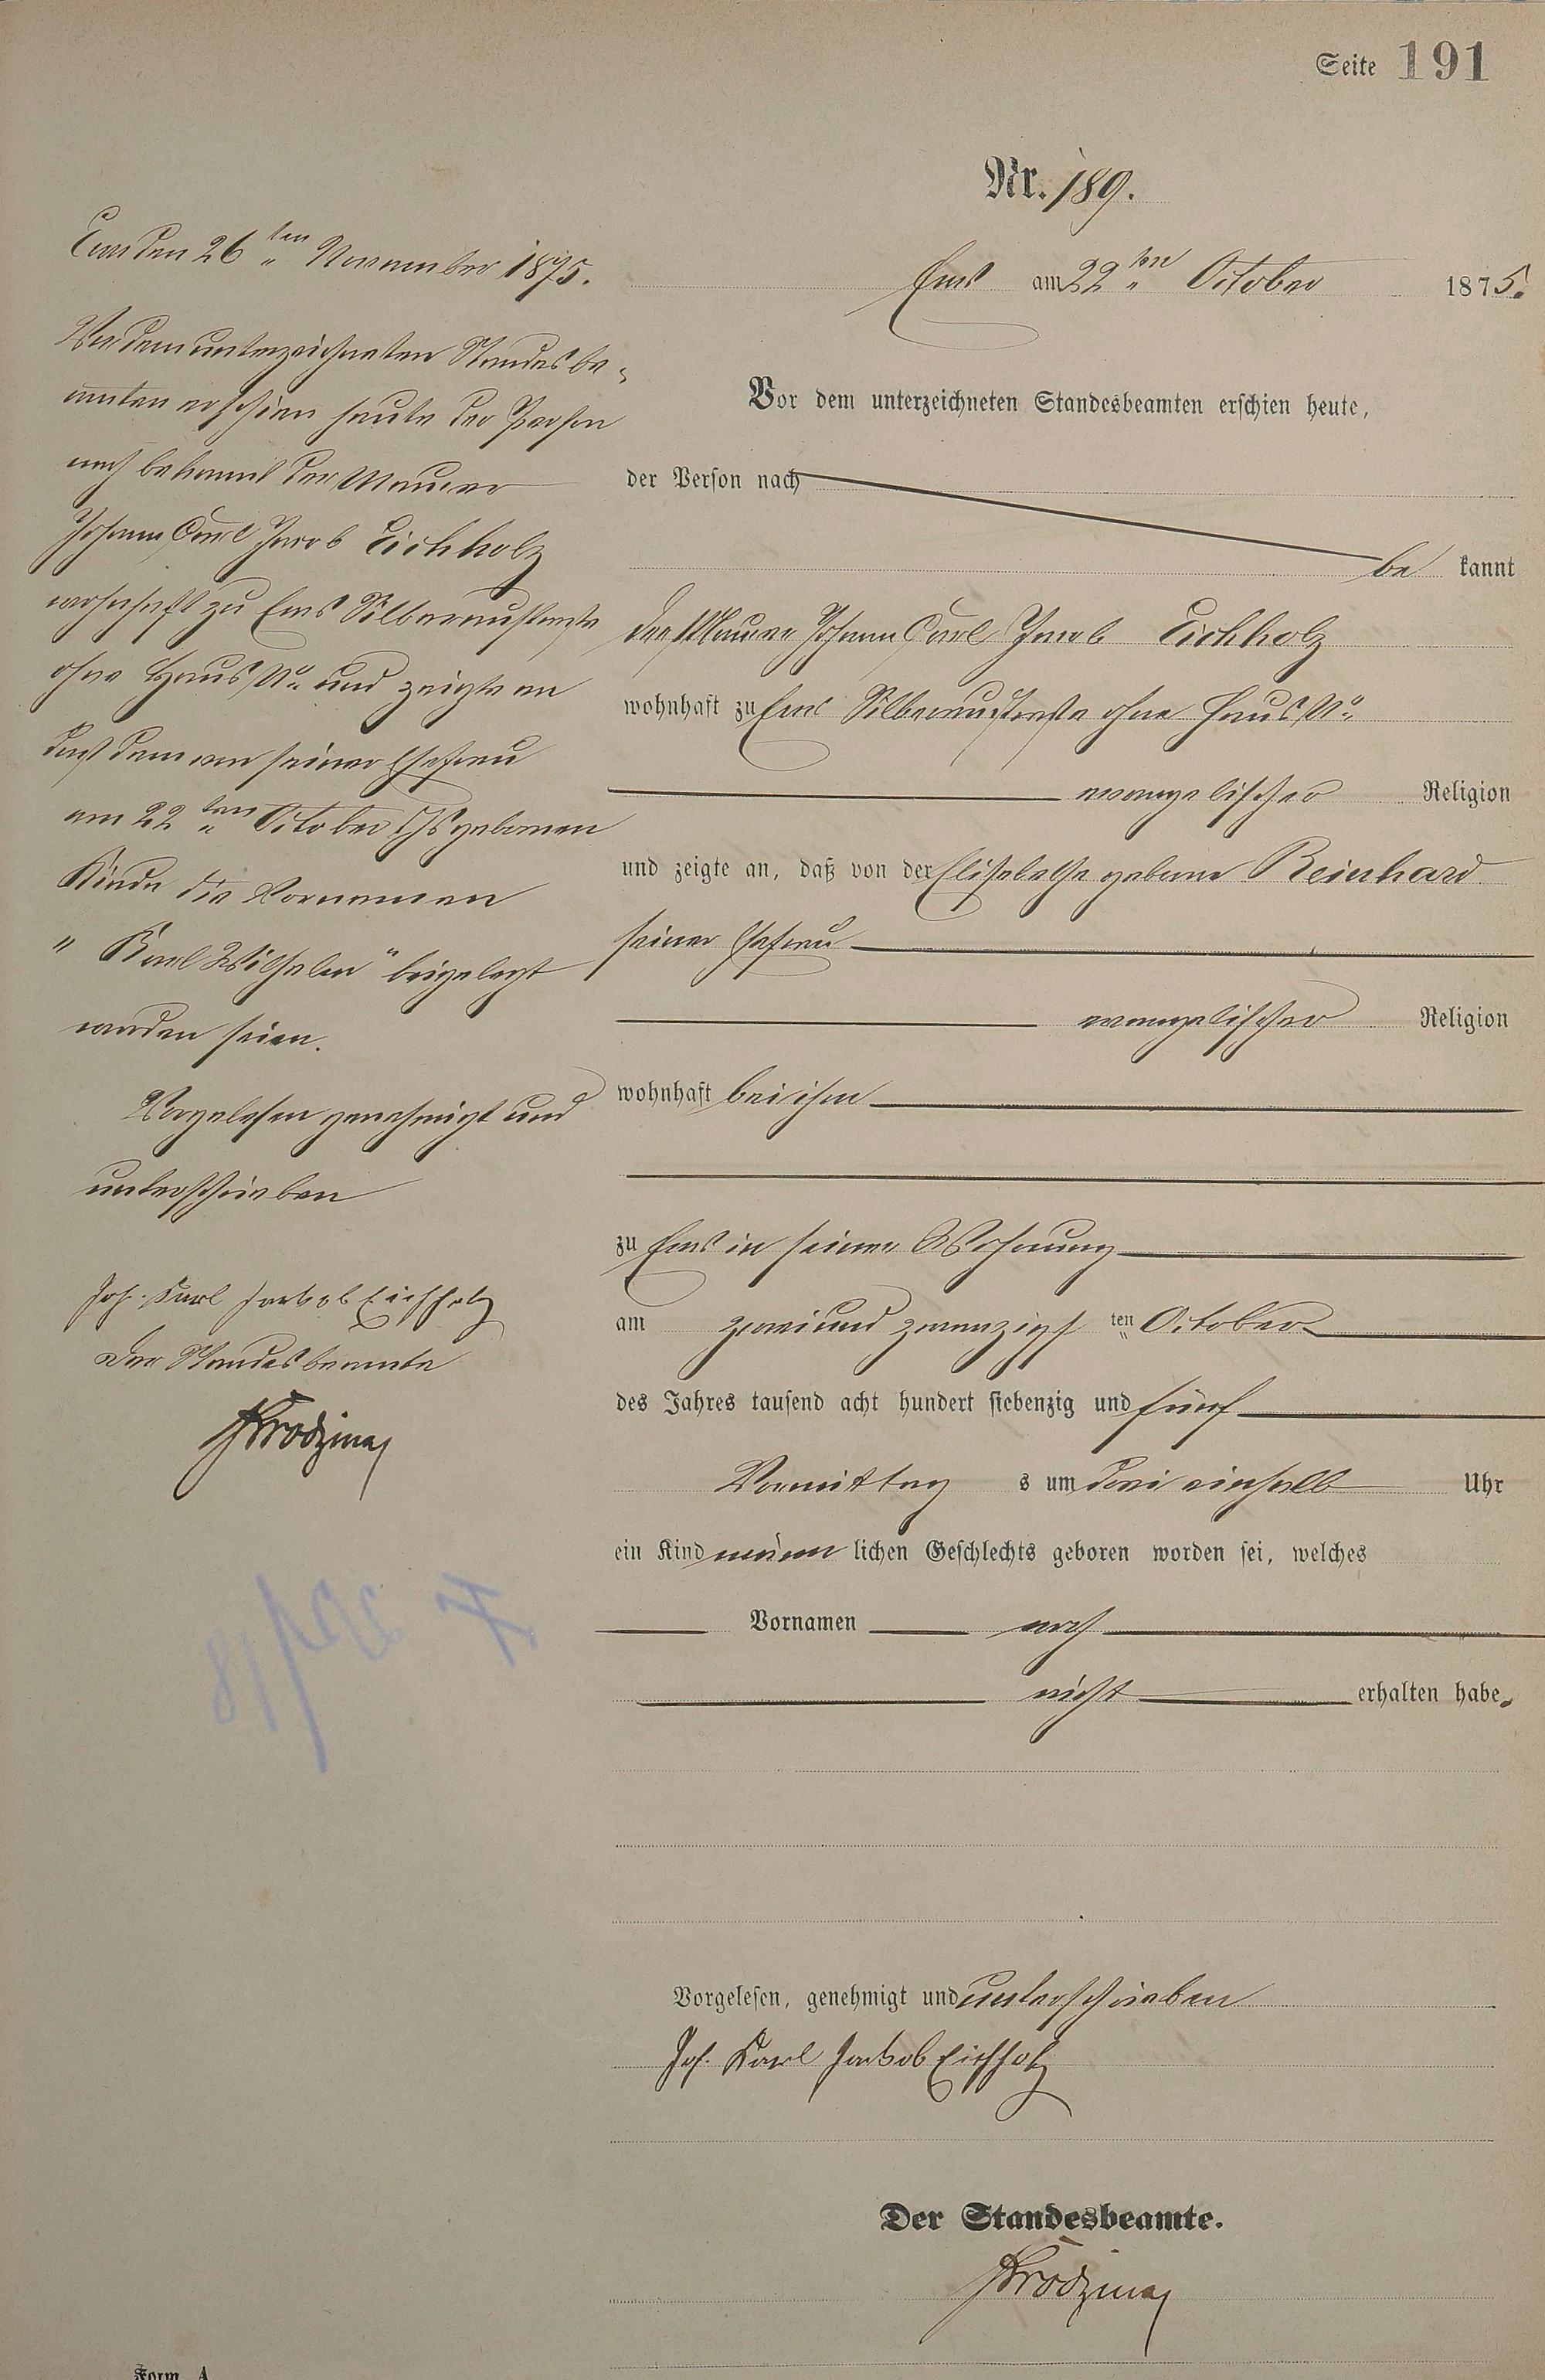 Seite 191
Nr. 189.
Ems am 22ten October 1875.
Vor dem unterzeichneten Standesbeamten erschien heute,
der Person nach
be kannt
der Maurer Johann Carl Jacob Eichholz
wohnhaft zu Ems Silberaustraße ohne Haus No
evangelischer Religion
und zeigte an, daß von der Elisabethe geborne Reinhard
seiner Ehefrau
evangelischer Religion
wohnhaft bei ihm
zu Ems in seiner Wohnung
am zweiundzwanzigsten October
des Jahres tausend acht hundert siebenzig und fünf
Vormittags um drei einhalb Uhr
ein Kind männlichen Geschlechts geboren worden sei, welches
Vornamen noch
nicht erhalten habe.
Vorgelesen, genehmigt und unterschrieben
Joh. Karl Jackob Eichholz
Der Standesbeamte.
Ems den 26ten November 1875.
Vor dem unterzeichneten Standesbe-
amten erschien heute der Person
nach bekannt der Maurer
Johann Carl Jacob Eichholz
wohnhaft zu Ems Silberaustraße
ohne Haus No und zeigte an
daß dem von seiner Ehefrau
am 22ten October dJs gebornen
Kinde die Vornamen
"Karl Wilhelm" beigelegt
worden seien.
Vorgelesen genehmigt und
unterschrieben
Joh. Karl Jackob Eichholz
Der Standesbeamte
Form. A